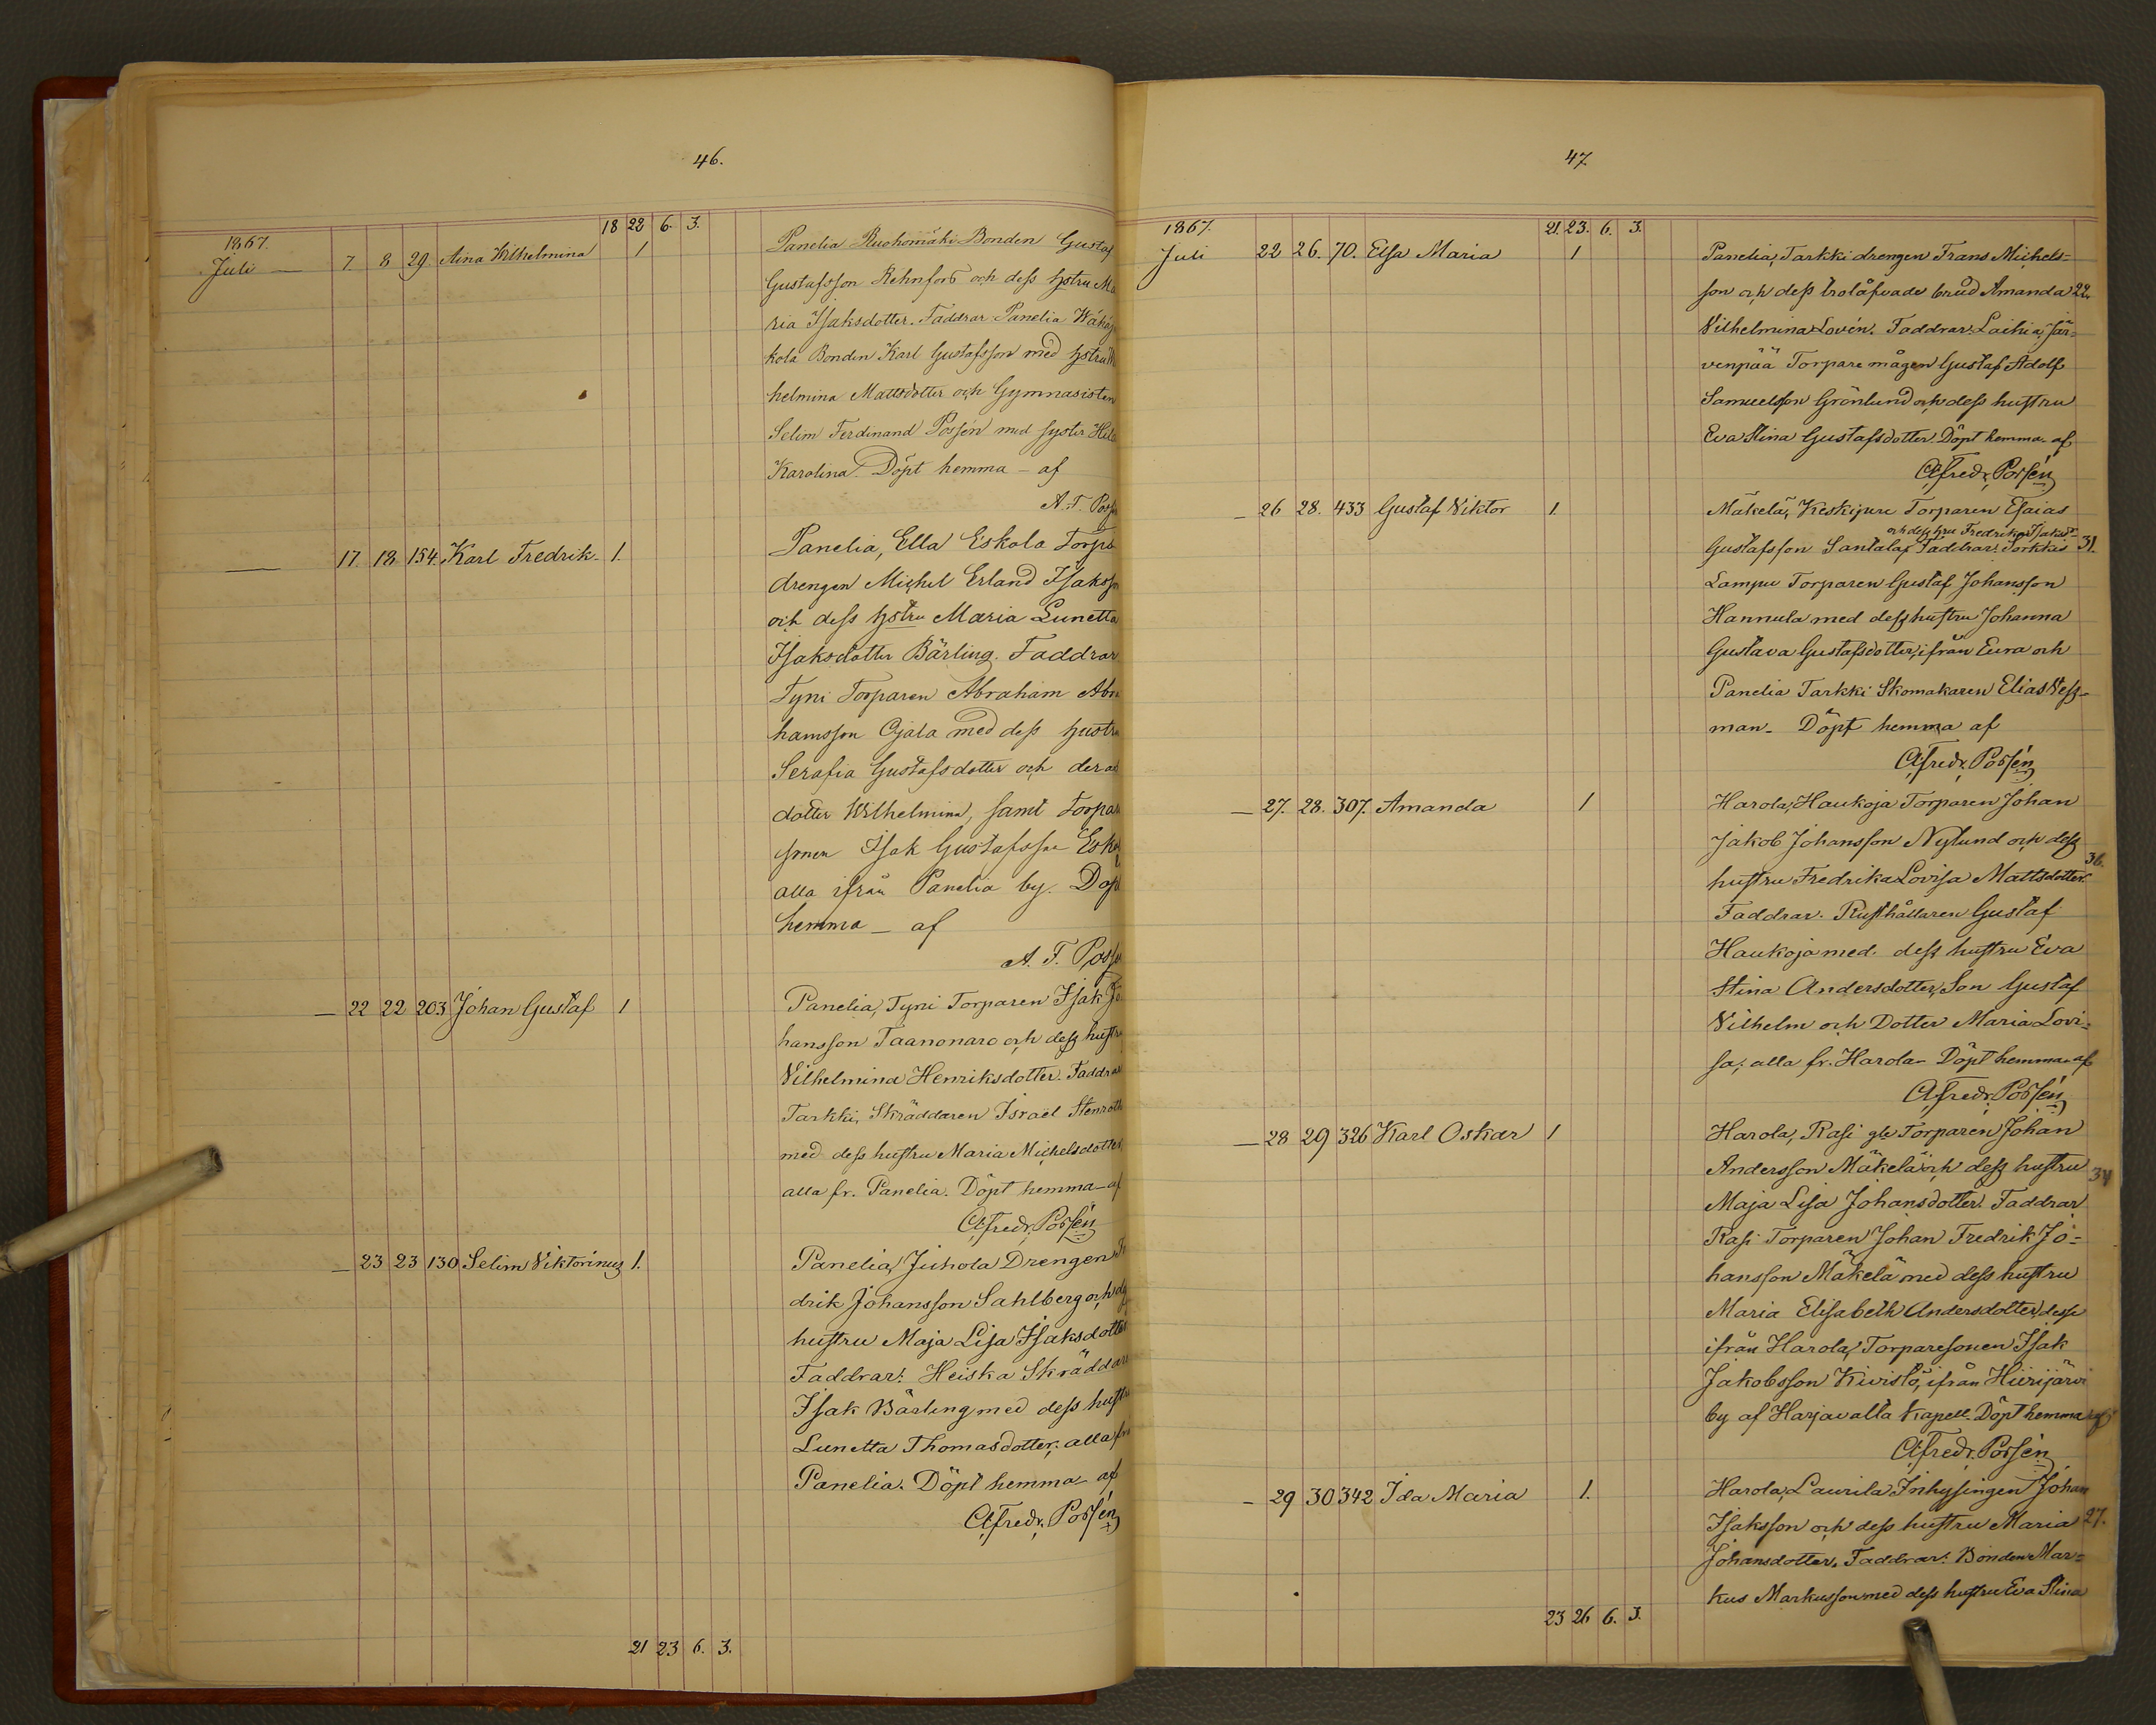 46.
18 22 6. 3.
1867.
Juli — 7. 8 29. Aina Wilhelmina 1
Panelia Ruohomäki Bonden Gustaf
Gustafsson Rehnfors och dess hstru Ma
ria Isaksdotter. Faddrar Panelia
kola Bonden Karl Gustafsson med hstru
helmina Mattsdotter och Gymnasisten
Selim Ferdinand Possén med syster
Karolina. Döpt hemma – af
A. F. Poss
— 17. 18 154. Karl Fredrik – 1.
Panelia, Ella Eskola Torpa
drengen Michel Erland Isaksso
och dess hstru Maria Lunetta
Isaksdotter Bärling. Faddrar
Tyni Torparen Abraham Abra
hamsson Ojala med dess hustru
Serafia Gustafsdotter och deras
dotter Wilhelmina, samt Torpare
sonen Isak Gustafsson Esko
alla ifrån Panelia by. Döpt
hemma – af
A. F. Posse
— 22 22 203 Johan Gustaf 1
Panelia, Tyni Torparen Isak Jo
hansson Taanonaro och dess hustru
Vilhelmina Henriksdotter. Faddrar
Tarkki, Skräddaren Israel Stenroth
med dess hustru Maria Michelsdotter,
alla fr. Panelia. Döpt hemma – af
Alfredr. Possén
— 23 23 130 Selim Viktorinus 1.
Panelia, Juhola Drengen Fr
drik Johansson Sahlberg och des
hustru Maja Lisa Isaksdotter
Faddrar: Heiska Skräddare
Isak Bärling med dess hustru
Lunetta Thomasdotter; alla frn
Panelia. Döpt hemma – af
Alfredr. Possén
21 23 6. 3.
47.
21. 23. 6. 3.
1867.
Juli 22 26. 70. Elsa Maria 1
Panelia, Tarkki drengen Frans Michels=
son och dess trolåfvade brud Amanda 22.
Vilhelmina Lovén. Faddrar: Laihia, Jär=
venpää Torpare mågen Gustaf Adolf
Samuelsson Grönlund och dess hustru
Eva Stina Gustafsdotter. Döpt hemma af
Alfredr. Possén
— 26 28. 433 Gustaf Viktor 1.
Mäkelä, Keskijure Torparen Esaias
och dess hru Fredrika Isaksd.
Gustafsson Santala; Faddrar: Sorkkis 31.
Lampu Torparen Gustaf Johansson
Hannula med dess hustru Johanna
Gustava Gustafsdotter, ifrån Eura och
Panelia Tarkki Skomakaren Elias Wess=
man – Döpt hemma af
Alfredr. Possén
— 27. 28. 307. Amanda 1
Harola, Haukoja Torparen Johan
Jakob Johansson Nylund och dess
36.
hustru Fredrika Lovisa Mattsdotter.
Faddrar: Rusthållaren Gustaf
Haukoja med dess hustru Eva
Stina Andersdotter, Son Gustaf
Vilhelm och Dotter Maria Lovi=
sa; alla fr. Harola – Döpt hemma af
Alfredr. Possén
— 28 29 326 Karl Oskar 1
Harola, Rasi gle Torparen Johan
Andersson Mäkelä och dess hustru 34
Maja Lisa Johansdotter. Faddrar
Rasi Torparen Johan Fredrik Jo=
hansson Mäkelä med dess hustru
Maria Elisabeth Andersdotter, desse
ifrån Harola, Torparesonen Isak
Jakobsson Kivistö, ifrån Hiirijärvi
by af Harjavalta Kapell. Döpt hemma af
Alfredr. Possén
– 29 30 342 Ida Maria 1.
Harola, Laurila Inhysingen Johan
Isaksson och dess hustru Maria 27.
Johansdotter. Faddrar: Bonden Mar=
kus Markusson med dess hustru Eva Stina
23 26 6. 3.